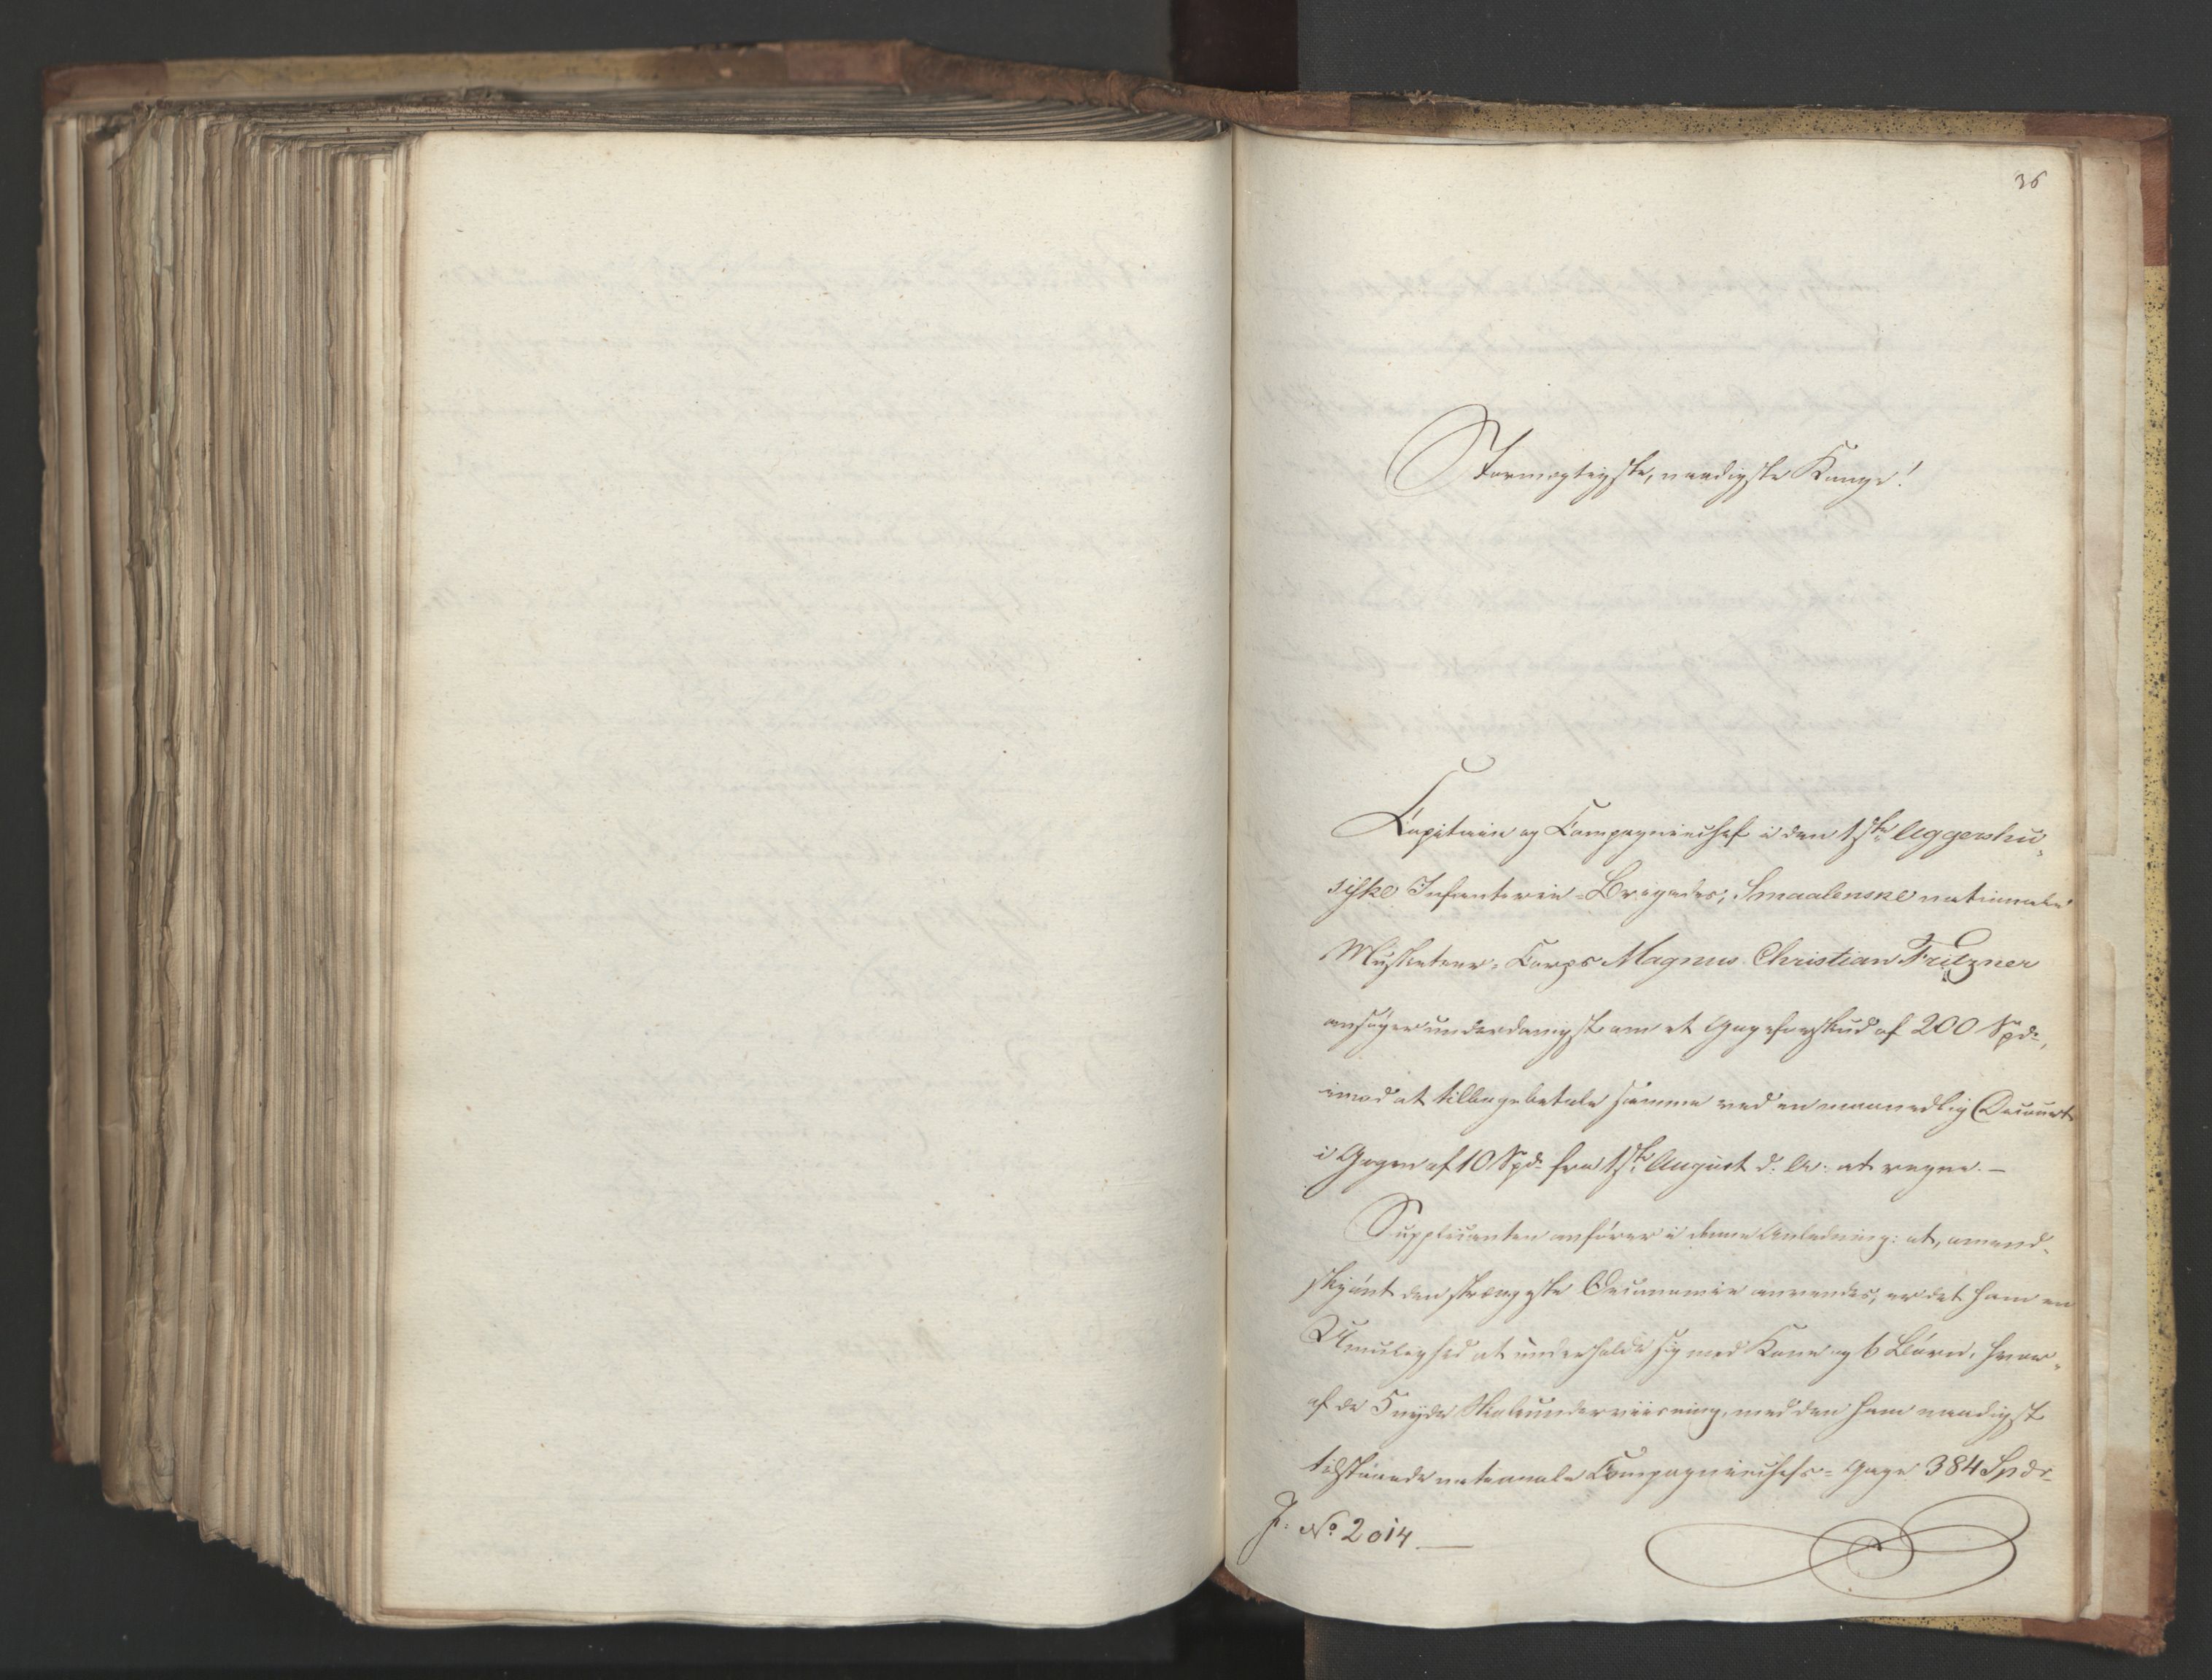 36
Stormægtigste, naadigste Konge!
Capitain og Compagniechef i den 1ste Aggershu„
siske Infanterie-Brigades, Smaalenske nationale
Musketeer-Corps Magnus Christian Fritzner
ansøger underdanigst om et Gageforskud af 200 Spd:,
imod at tilbagebetale samme ved en maanedlig Decourt
i Gagen af 10 Spd: fra 1ste August d: A: at regne.—
Supplicanten anfører i denne Anledning: at, omend-
skjønt den strængeste Oeconomie anvendes, er det ham en
Umulighed at underholde sig med Kone og 6 Børn, hvor„
af de 5 nyde Skoleunderviisning, med den ham naadigst
tilstaaede nationale Compagniechefs-Gage 384 Spdr
J: No 2014.—